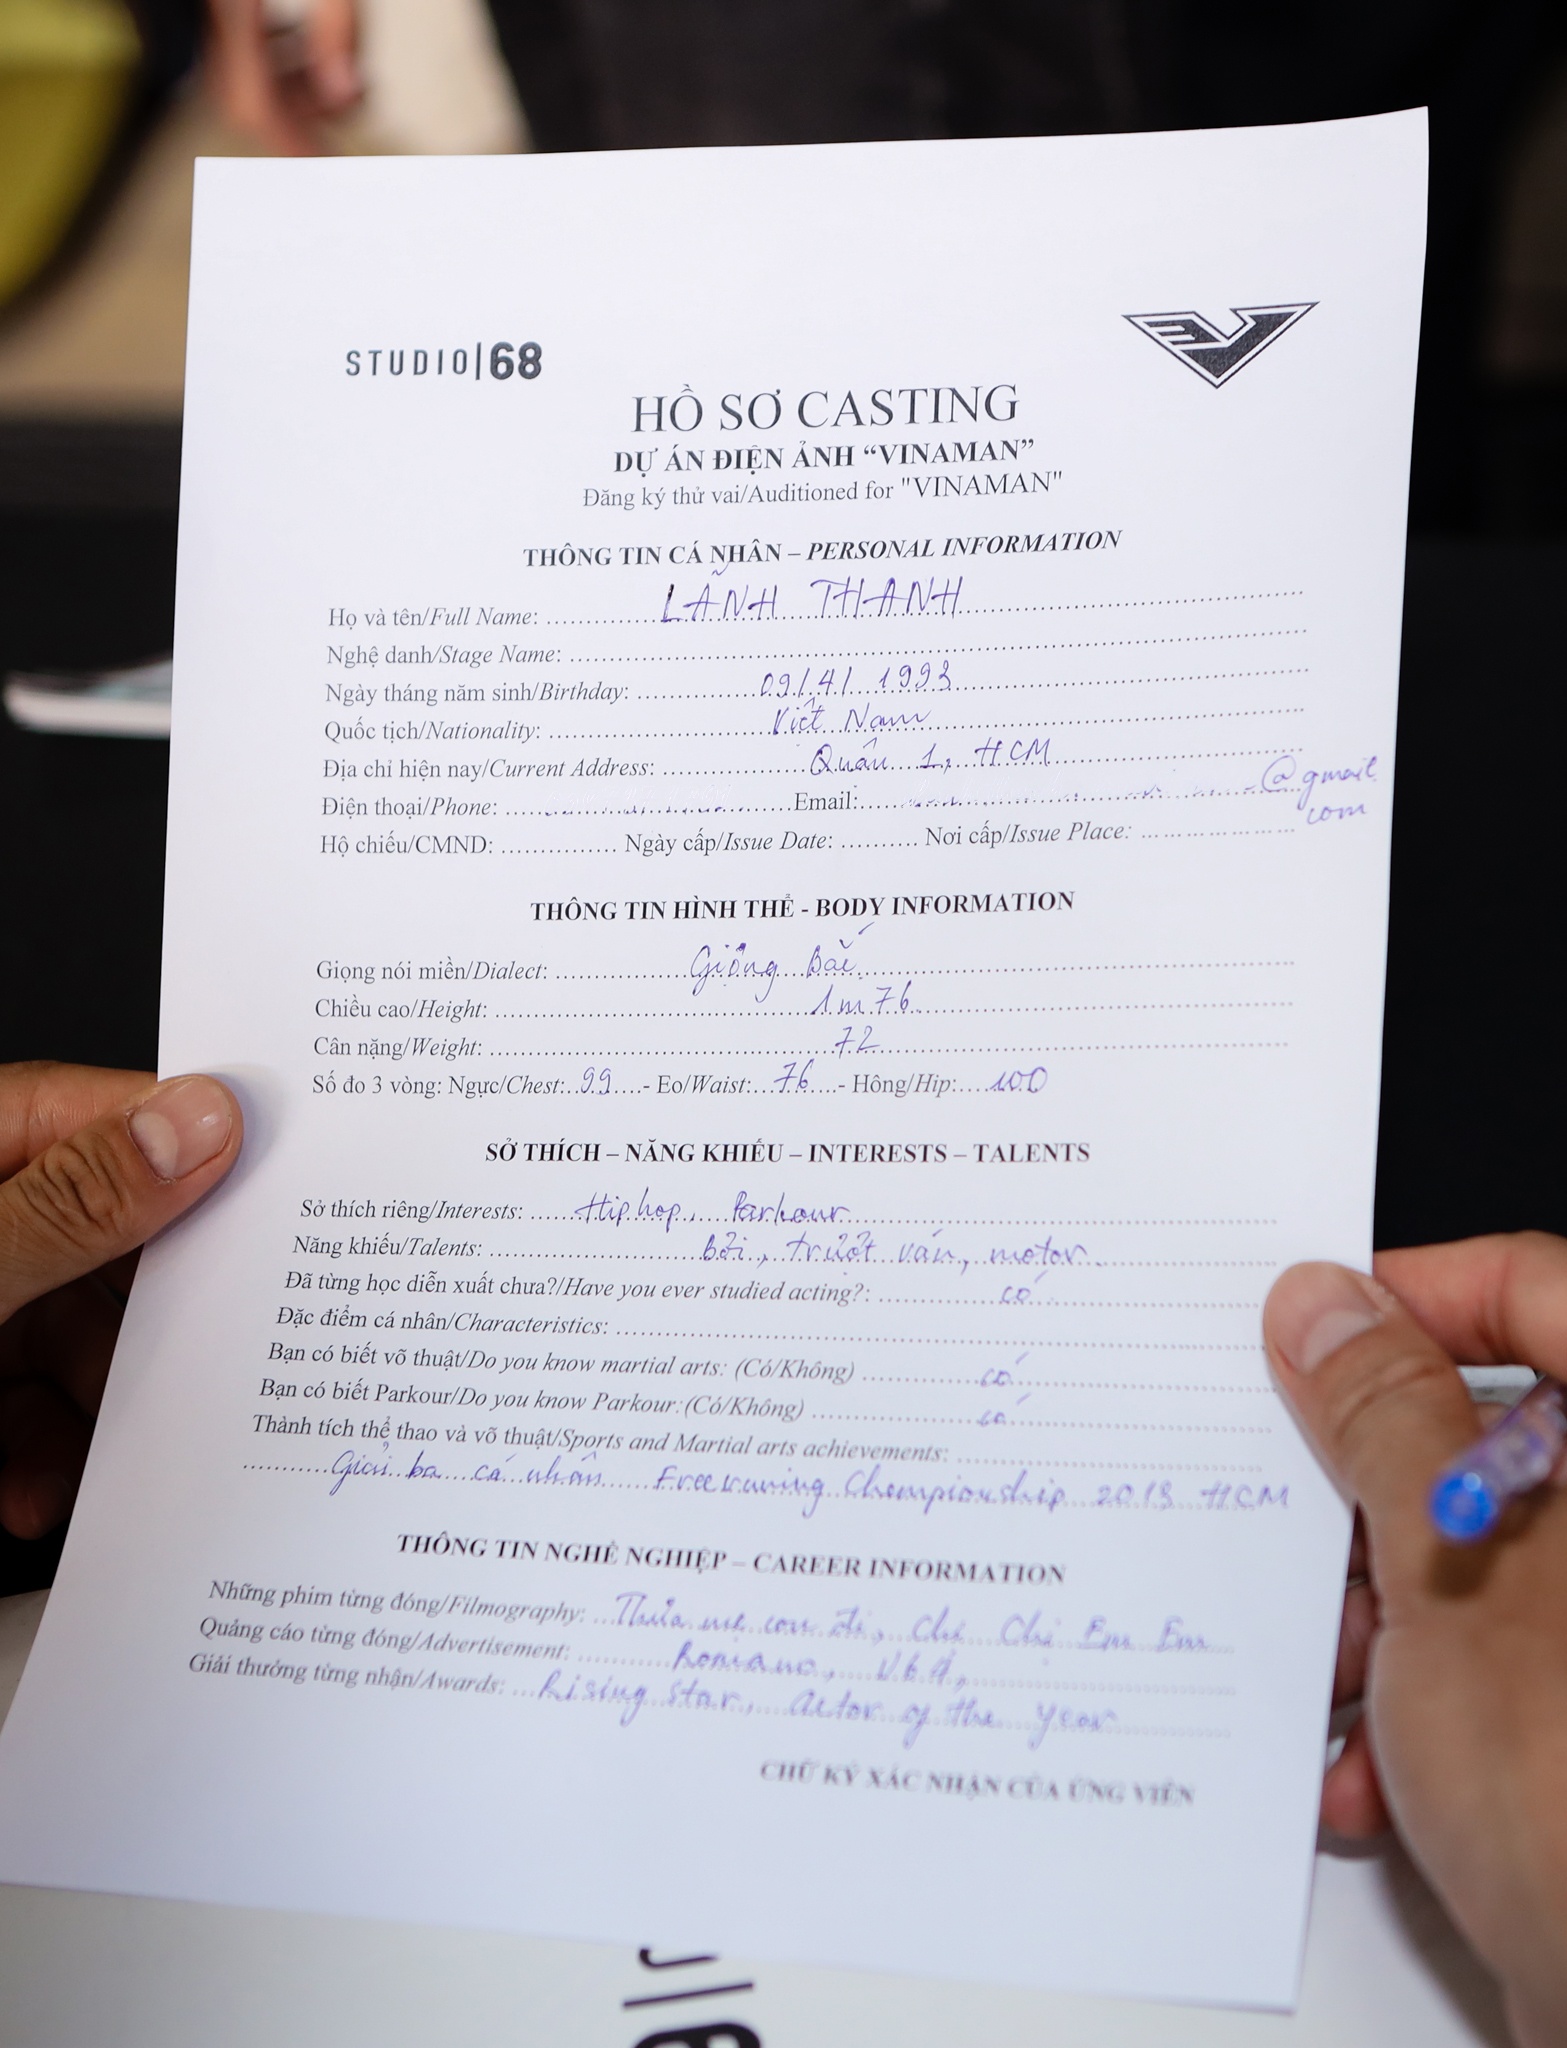 STUDIO|68
HỒ SƠ CASTING
DỰ ÁN ĐIỆN ẢNH “VINAMAN”
Đăng ký thử vai/Auditioned for "VINAMAN"
THÔNG TIN CÁ NHÂN – PERSONAL INFORMATION
Họ và tên/Full Name: LÃNH THANH
Nghệ danh/Stage Name:
Ngày tháng năm sinh/Birthday: 09/4/ 1993
Quốc tịch/Nationality: Việt Nam
Địa chỉ hiện nay/Current Address: Quận 1, HCM
Điện thoại/Phone: Email: @gmail
com
Hộ chiếu/CMND: Ngày cấp/Issue Date: Nơi cấp/Issue Place:
THÔNG TIN HÌNH THỂ - BODY INFORMATION
Giọng nói miền/Dialect: Giọng Bắc
Chiều cao/Height: 1m76
Cân nặng/Weight: 72
Số đo 3 vòng: Ngực/Chest: 99 - Eo/Waist: 76 - Hông/Hip: 100
SỞ THÍCH – NĂNG KHIẾU – INTERESTS – TALENTS
Sở thích riêng/Interests: Hiphop, Parkour
Năng khiếu/Talents: bơi, trượt ván, motor.
Đã từng học diễn xuất chưa?/Have you ever studied acting?: có
Đặc điểm cá nhân/Characteristics:
Bạn có biết võ thuật/Do you know martial arts: (Có/Không) có
Bạn có biết Parkour/Do you know Parkour:(Có/Không) có
Thành tích thể thao và võ thuật/Sports and Martial arts achievements:
Giải ba cá nhân Freeruning Championship 2013 HCM
THÔNG TIN NGHỀ NGHIỆP – CAREER INFORMATION
Những phim từng đóng/Filmography: Thưa mẹ con đi, Chị Chị Em Em
Quảng cáo từng đóng/Advertisement: Romano,
Giải thưởng từng nhận/Awards: Rising star, actor of the year
CHỮ KÝ XÁC NHẬN CỦA ỨNG VIÊN